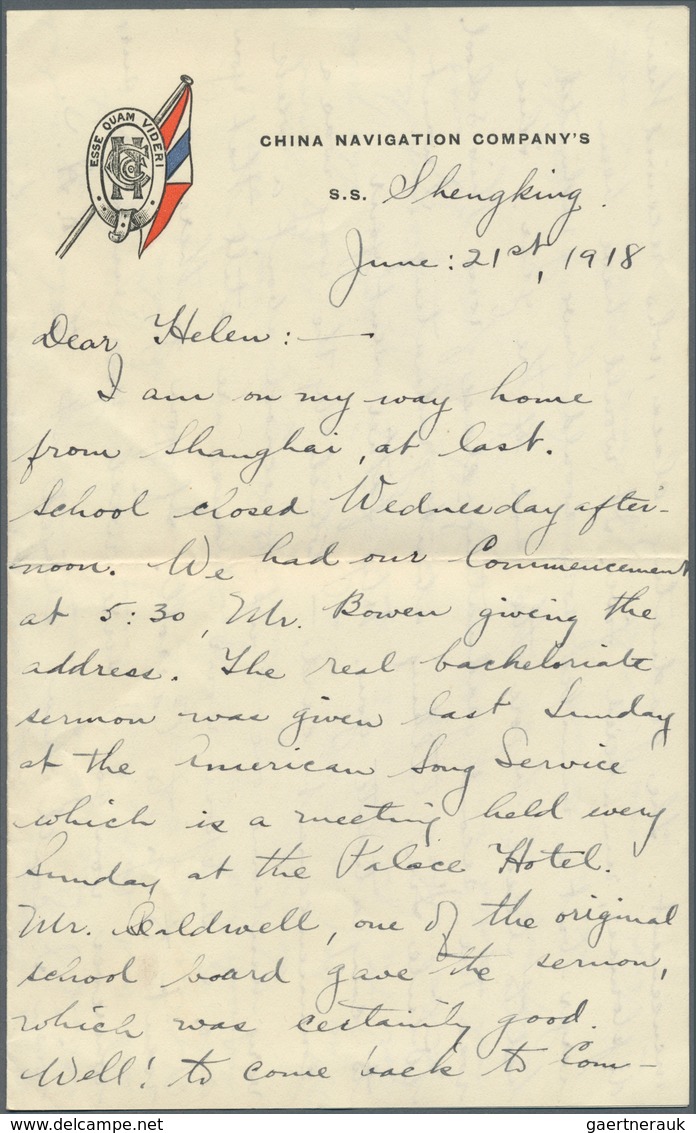 ESSE QUAM VIDERI
CHINA NAVIGATION COMPANY'S
S.S. Shengking.
June: 21st, 1918
Dear Helen: —
I am on my way home
from Shanghai, at last.
School closed Wednesday after-
noon. We had our Commencement
at 5:30, Mr. Bowen giving the
address. The real bacheloriate
sermon was given last Sunday
at the American Song Service
which is a meeting held every
Sunday at the Palace Hotel.
Mr. Caldwell, one of the original
school board gave the sermon,
which was certainly good.
Well! to come back to Com-
delcampe.net
gaertnerauk